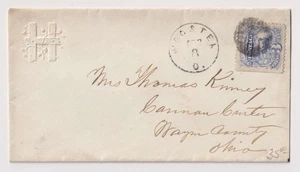 WOOSTER
O.
Mrs Thomas Kinney
Cannan Center
Wayne County
Ohio
35